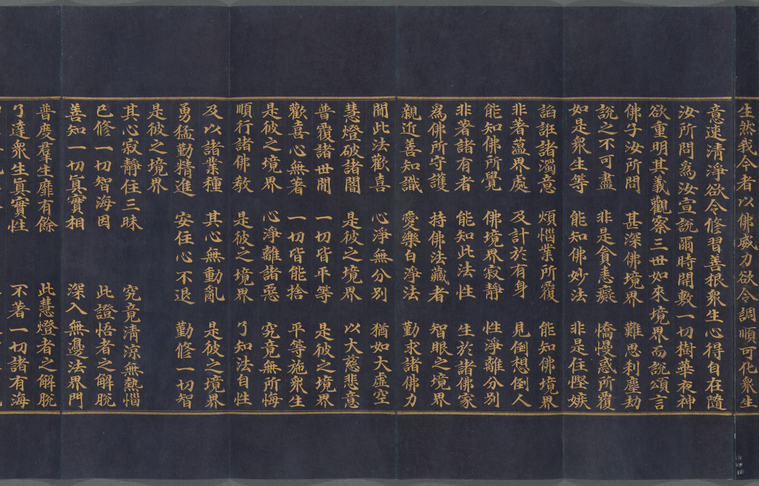 生然我今者以佛威力欲令調順可化衆生
意速清淨欲令修習善根衆生心得自在隨
汝所問爲汝宣說爾時開敷一切樹華夜神
欲重明其義觀察三世如來境界而說頌言
佛子汝所問 甚深佛境界 難思刹塵劫
說之不可盡 非是貪恚癡 憍慢惑所覆
如是衆生等 能知佛妙法 非是住慳嫉
諂誑諸濁意 煩惱業所覆 能知佛境界
非著蘊界處 及計於有身 見倒想倒人
能知佛所覺 佛境界寂靜 性淨離分別
非著諸有者 能知此法性 生於諸佛家
爲佛所守護 持佛法藏者 智眼之境界
親近善知識 愛樂白淨法 勤求諸佛力
聞此法歡喜 心淨無分別 猶如大虛空
慧燈破諸闇 是彼之境界 以大慈悲意
普覆諸世間 一切皆平等 是彼之境界
歡喜心無著 一切皆能捨 平等施衆生
是彼之境界 心淨離諸惡 究竟無所悔
順行諸佛教 是彼之境界 了知法自性
及以諸業種 其心無動亂 是彼之境界
勇猛勤精進 安住心不退 勤修一切智
是彼之境界
其心寂靜住三昧 究竟清涼無熱惱
已修一切智海因 此證悟者之解脫
善知一切眞實相 深入無邊法界門
普度羣生靡有餘 此慧燈者之解脫
了達衆生眞實性 不著一切諸有海